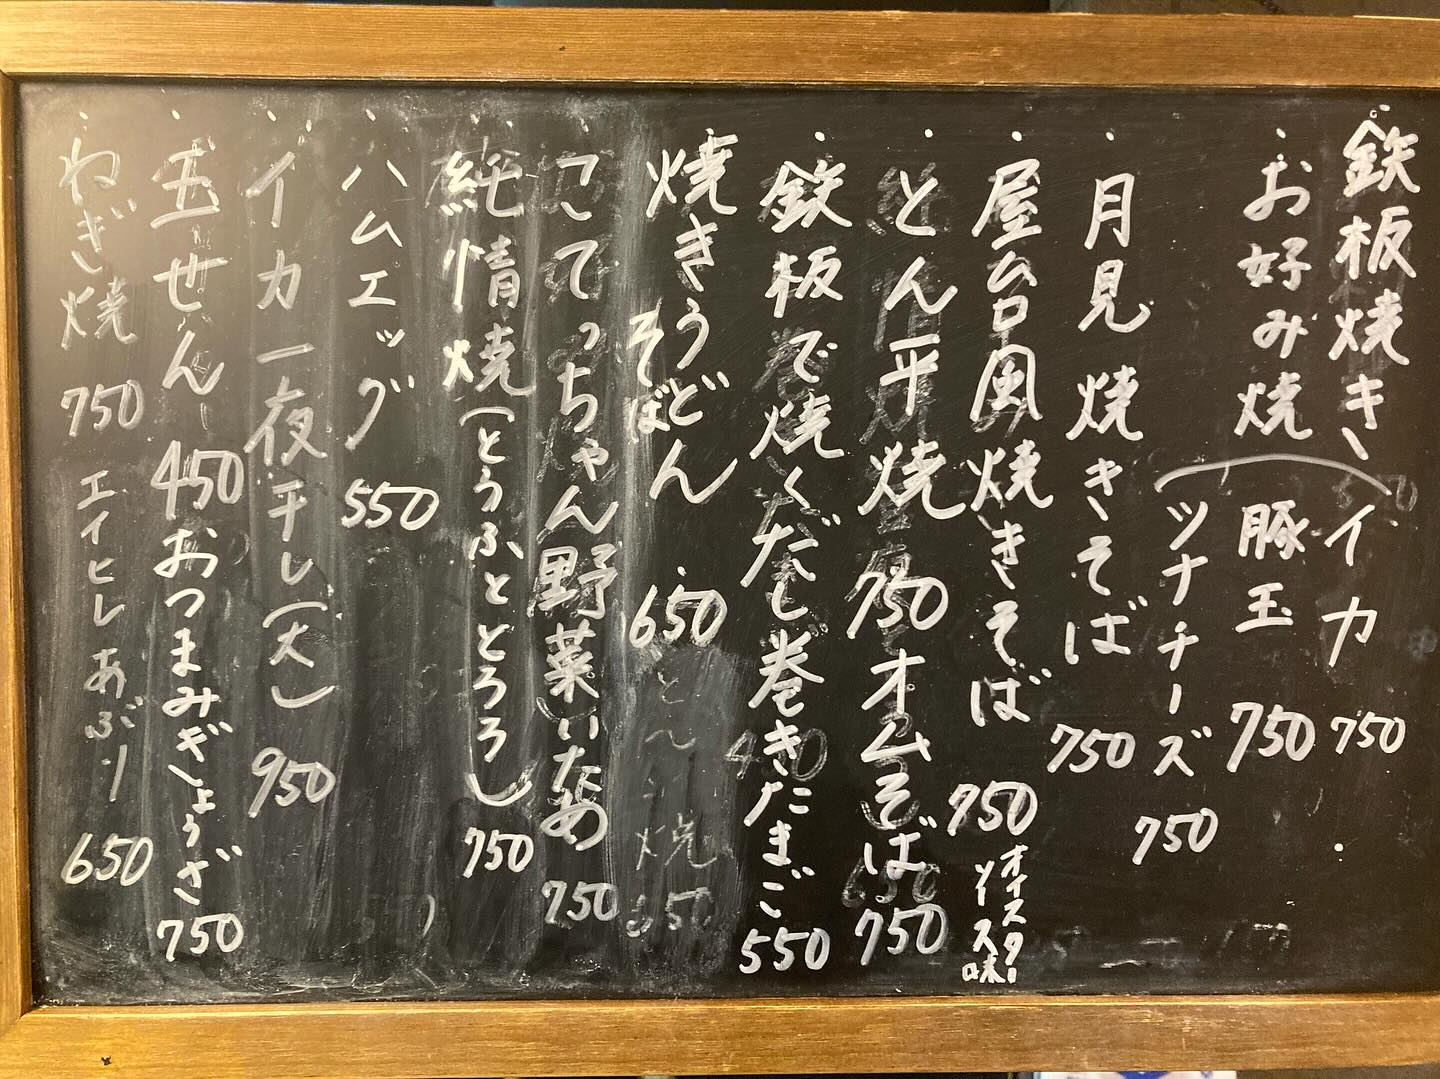 ・鉄板焼き
・お好み焼
イカ 750
豚玉 750
(ツナチーズ 750
・月見焼きそば 750
・屋台風焼きそば 750
オイスター
ソース味
・とん平焼 750 オムそば 750
・鉄板で焼くだし巻きたまご 550
・焼きうどん
そば
650
・こてっちゃん野菜いため 750
・純情焼(とうふととろろ) 750
・ハムエッグ 550
・イカ一夜干し(大) 950
・玉せん 450 おつまみぎょうざ 750
・ねぎ焼 750 エイヒレあぶり 650